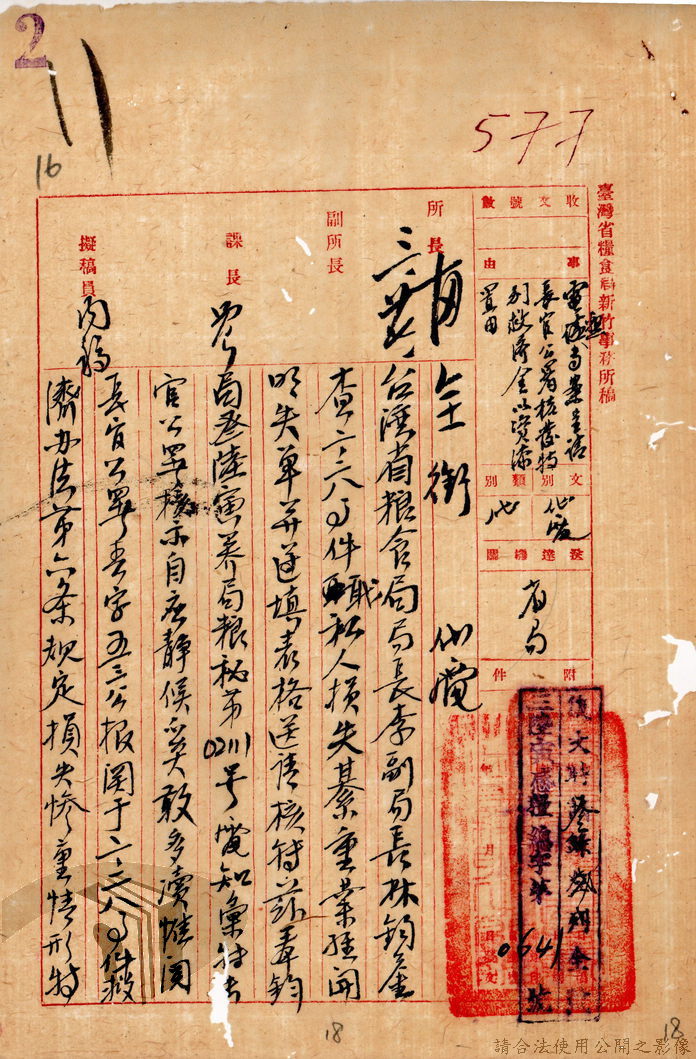 2
16
577
臺灣省糧食局新竹事務所稿
收文號數
事由
電懇鈞局彙呈請
長官公署核發特
別救濟金以資添
置由
文別
代電
類別
送達機關
省局
附件
所長
副所長
課長
擬稿員
全銜 代電
台灣省糧食局局長李副局長林鈞鑒
查二、二八事件職私人損失綦重業經開
明失單并逕填表格送請核轉茲奉鈞
局叁陸寅養局糧秘第02111號電知彙轉長
官公署核示自應靜候奚敢多瀆惟閱
長官公署春字五三公報關于二、二八事件救
濟办法第六条規定損失慘重情形特
發文時
字第
0641
號
18
18
請合法使用公開之影像